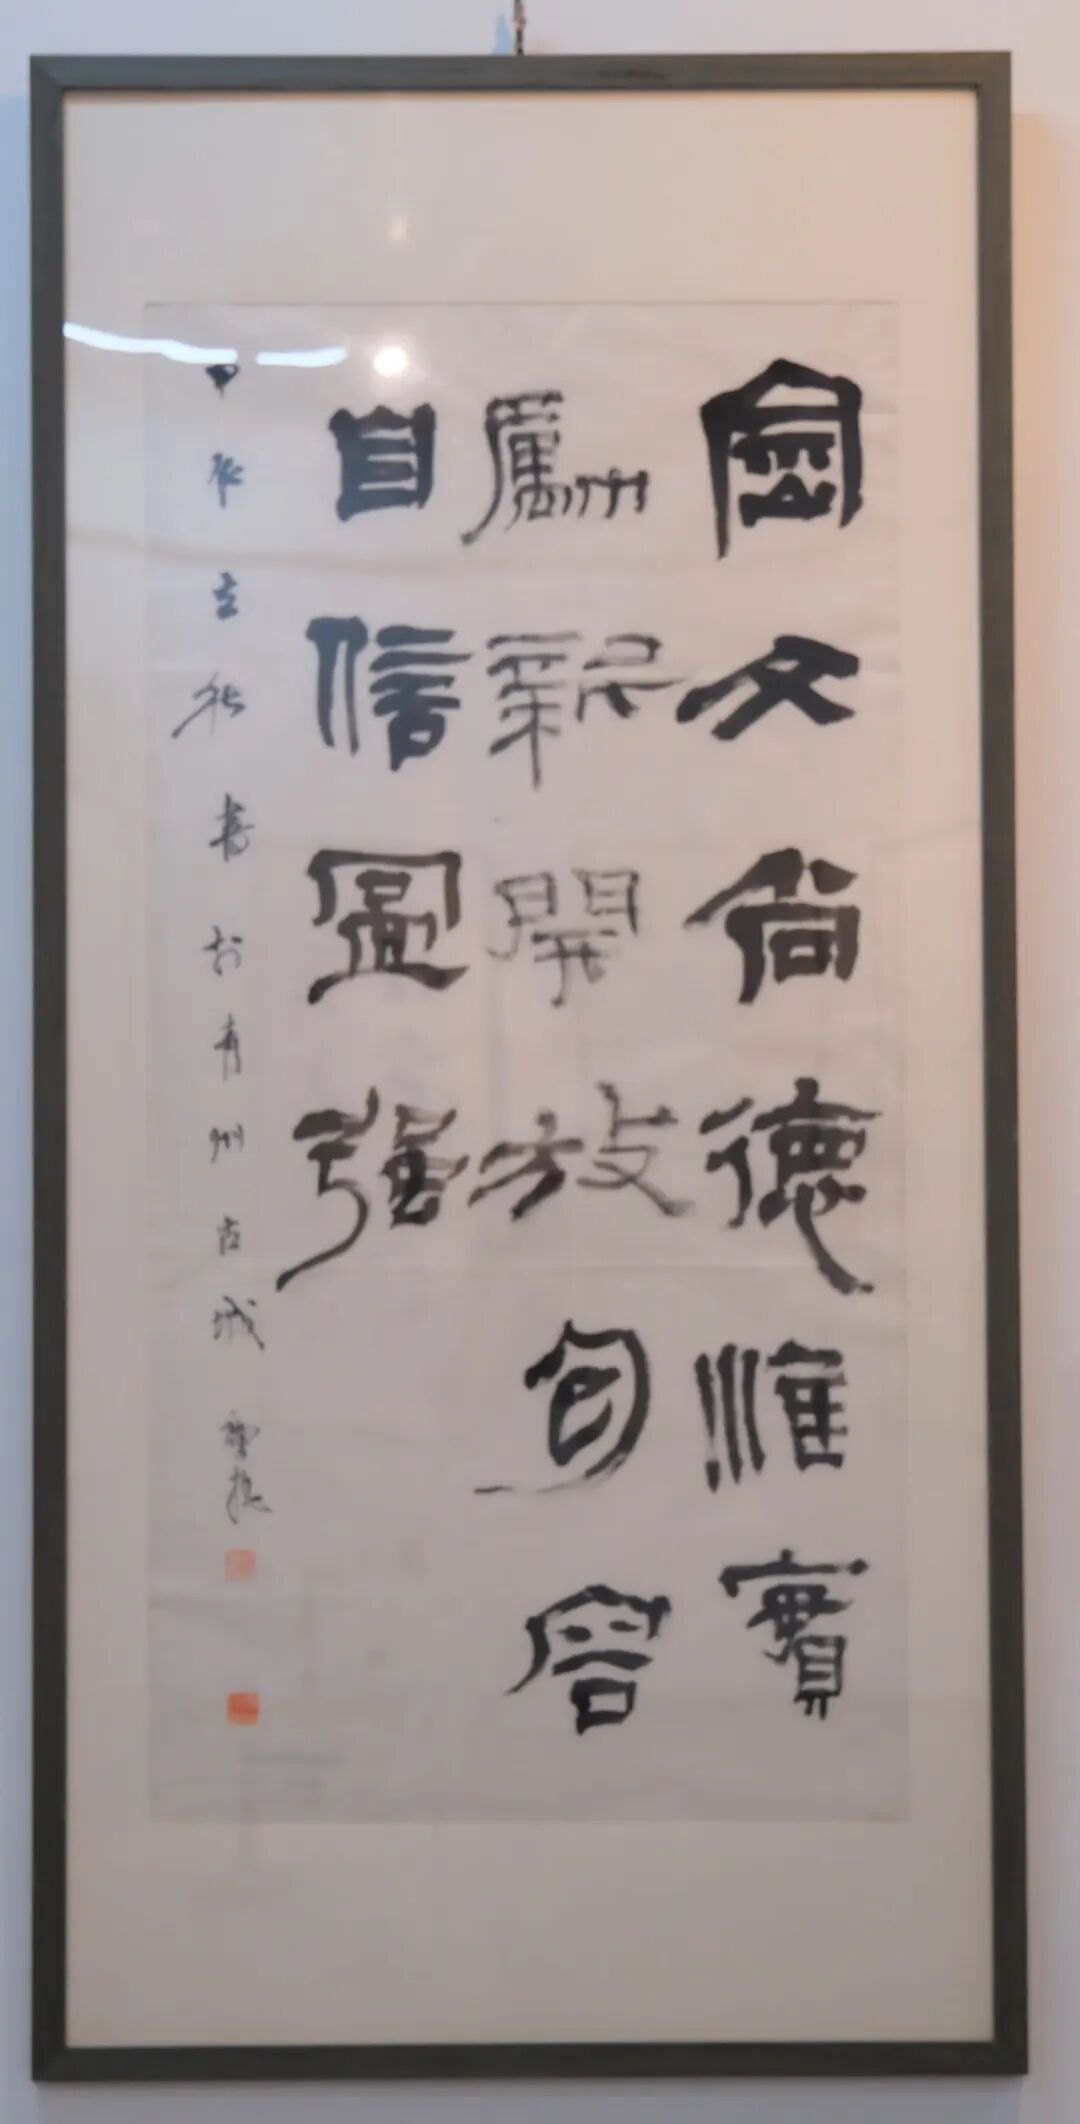 崇文尚德惟實
勵新開放包容
自信圖強
甲辰立秋書於青州古城